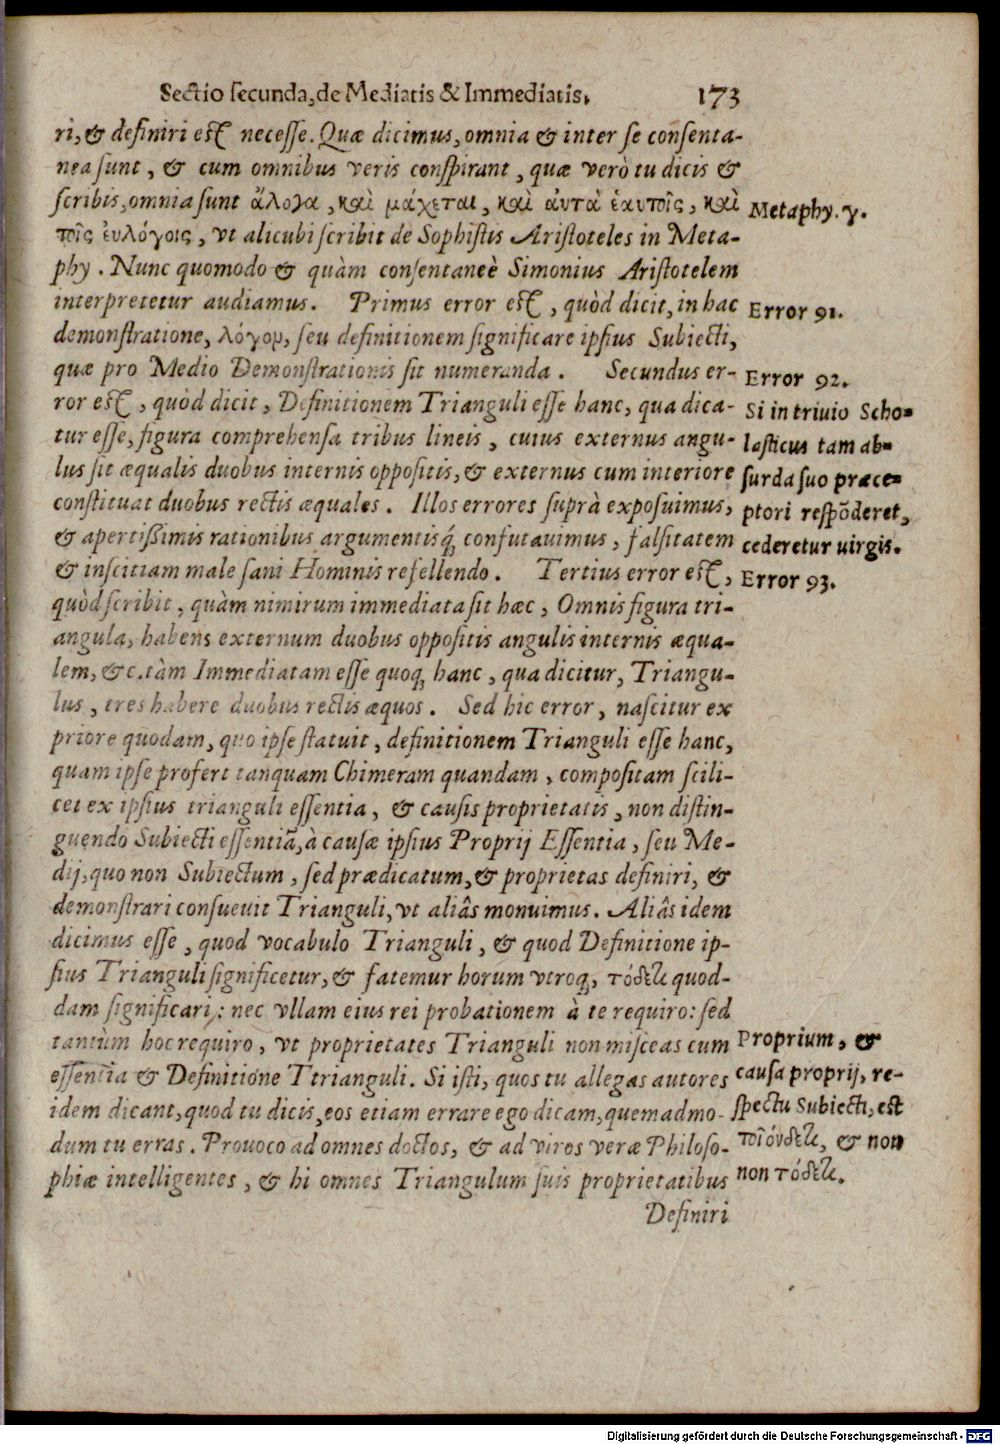 Sectio secunda, de Mediatis & Immediatis. 173
ri, & definiri est necesse. Quæ dicimus, omnia & inter se consenta-
nea sunt, & cum omnibus veris conspirant, quæ verò tu dicis &
scribis, omnia sunt ἄλογα, καὶ μάχεται, καὶ ἀυτὰ ἑαυτοῖς, καὶ
Metaphy. γ.
τοῖς ἐυλόγοις, vt alicubi scribit de Sophistis Aristoteles in Meta-
phy. Nunc quomodo & quàm consentaneè Simonius Aristotelem
interpretetur audiamus. Primus error est, quòd dicit, in hac
Error 91.
demonstratione, λόγον, seu definitionem significare ipsius Subiecti,
quæ pro Medio Demonstrationis sit numeranda. Secundus er-
Error 92.
ror est, quòd dicit, Definitionem Trianguli esse hanc, qua dica-
Si in triuio Scho-
tur esse, figura comprehensa tribus lineis, cuius externus angu-
lasticus tam ab-
lus sit æqualis duobus internis oppositis, & externus cum interiore
surda suo præce-
constituat duobus rectis æquales. Illos errores suprà exposuimus,
ptori respõderet,
& apertißimis rationibus argumentisq́ confutauimus, falsitatem
cederetur uirgis.
& inscitiam male sani Hominis refellendo. Tertius error est,
Error 93.
quòd scribit, quàm nimirum immediata sit hæc, Omnis figura tri-
angula, habens externum duobus oppositis angulis internis æqua-
lem, &c. tàm Immediatam esse quoq; hanc, qua dicitur, Triangu-
lus, tres habere duobus rectis æquos. Sed hic error, nascitur ex
priore quodam, quo ipse statuit, definitionem Trianguli esse hanc,
quam ipse profert tanquam Chimeram quandam, compositam scili-
cet ex ipsius trianguli essentia, & causis proprietatis, non distin-
guendo Subiecti essentiã, à causæ ipsius Proprij Essentia, seu Me-
dij, quo non Subiectum, sed prædicatum, & proprietas definiri, &
demonstrari consueuit Trianguli, vt aliâs monuimus. Aliâs idem
dicimus esse, quod vocabulo Trianguli, & quod Definitione ip-
sius Trianguli significetur, & fatemur horum vtroq;, τόδετι quod-
dam significari: nec vllam eius rei probationem à te requiro: sed
tantùm hoc requiro, vt proprietates Trianguli non misceas cum
Proprium, &
essentia & Definitione Ttrianguli. Si isti, quos tu allegas autores
causa proprij, re-
idem dicant, quod tu dicis, eos etiam errare ego dicam, quemadmo-
spectu Subiecti, est
dum tu erras. Prouoco ad omnes doctos, & ad viros veræ Philoso-
ποῖόνδετι, & non
phiæ intelligentes, & hi omnes Triangulum suis proprietatibus
non τόδετι.
Definiri
Digitalisierung gefördert durch die Deutsche Forschungsgemeinschaft - DFG